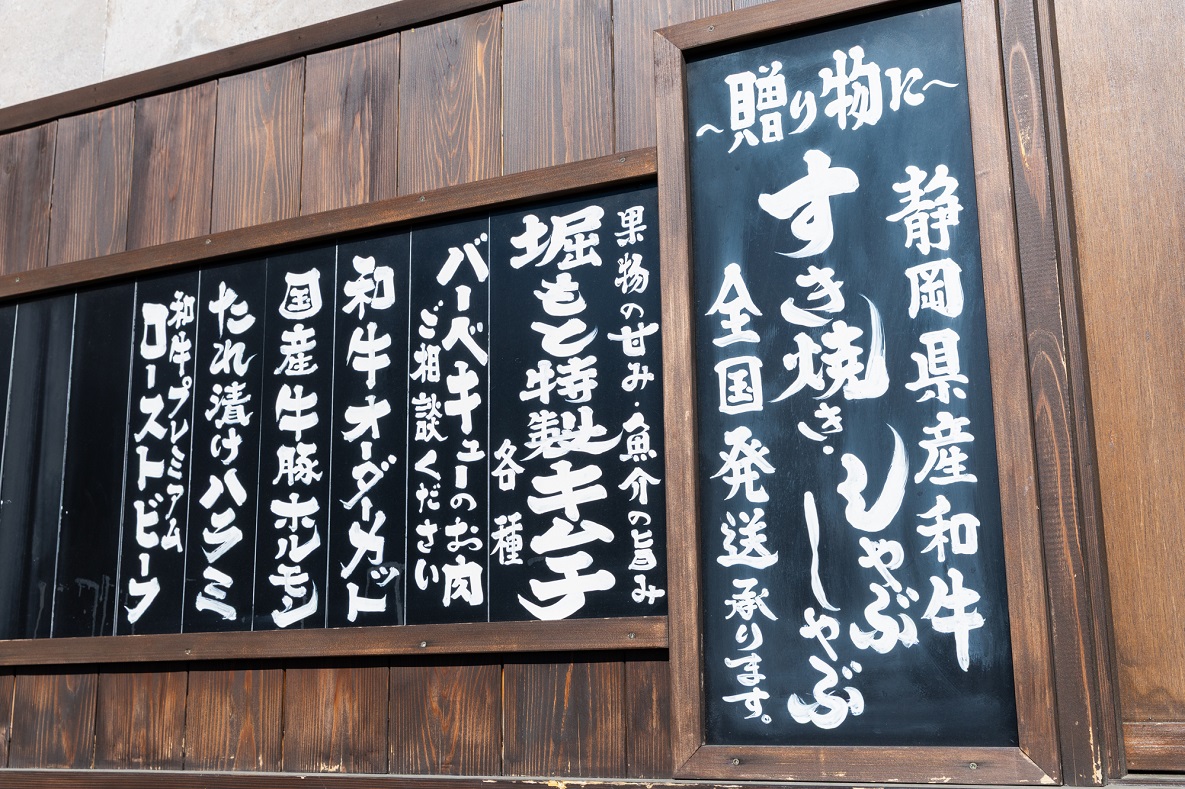 ～贈り物に～
静岡県産和牛
すき焼き しゃぶしゃぶ
全国発送承ります。
果物の甘み・魚介の旨み
堀もと特製キムチ
各種
バーベキューのお肉
ご相談ください
和牛オーダーカット
国産牛豚ホルモン
たれ漬けハラミ
和牛プレミアム
ローストビーフ